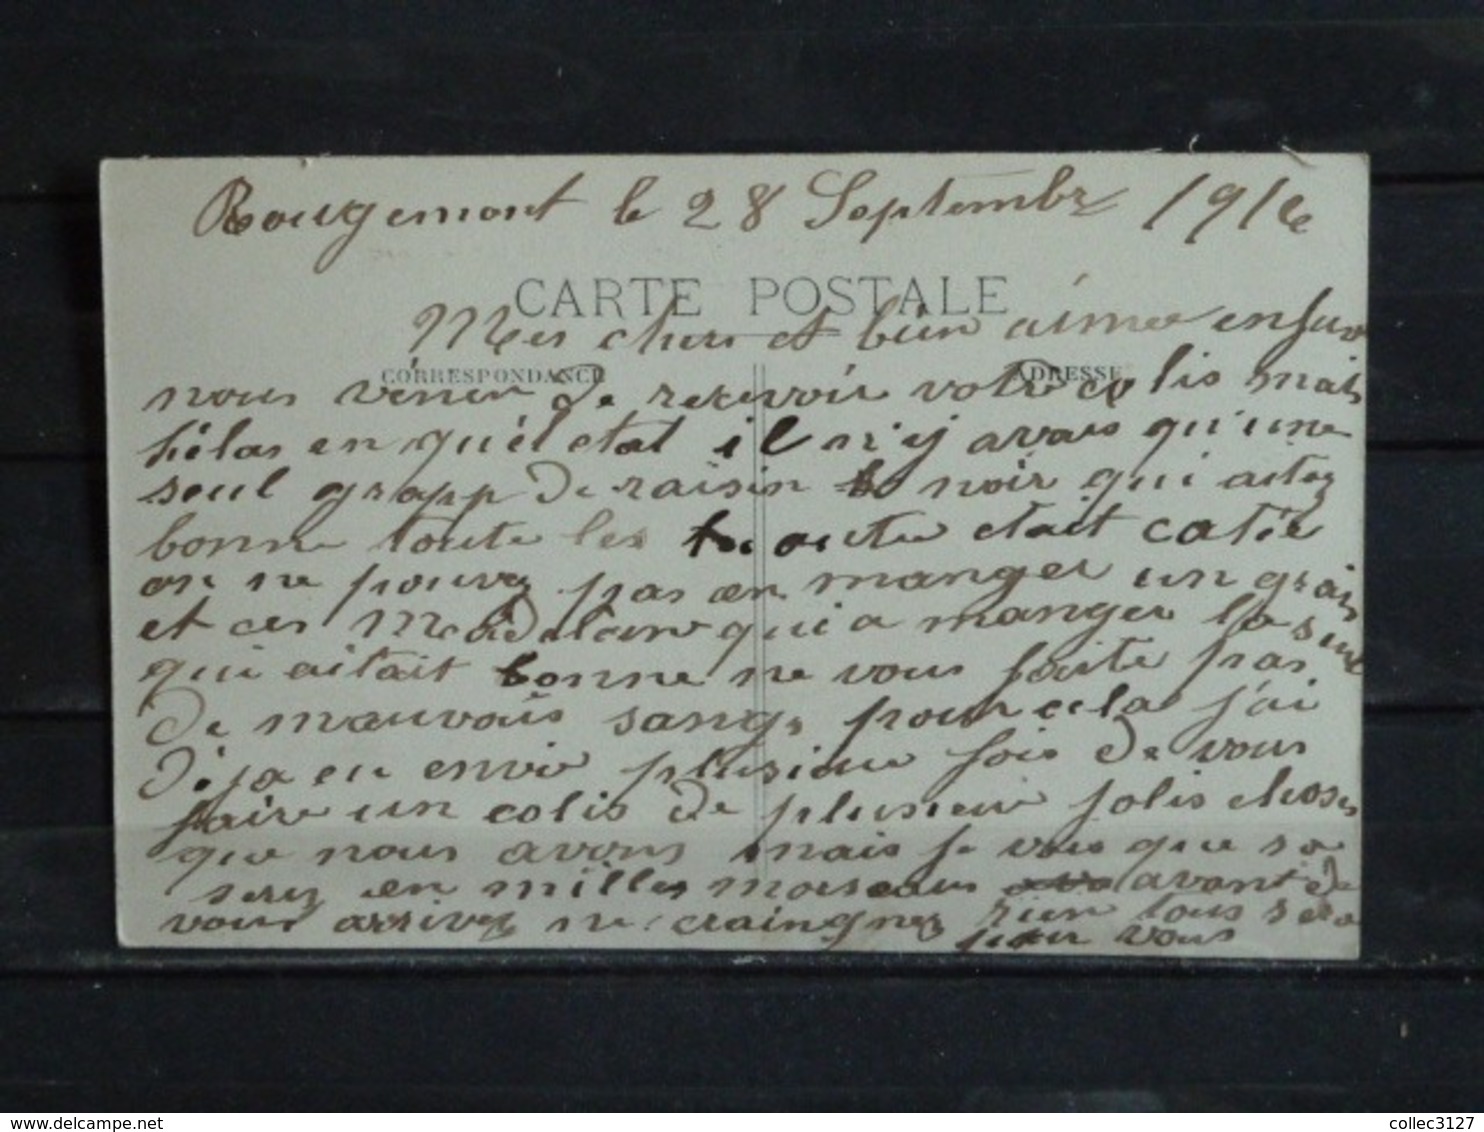 Rougemont le 28 Septembr 1916
CARTE POSTALE
Mes chers et bien aimee enfans
CORRESPONDANCE
ADRESSE
nous venon de recevoir votre colis mais
hélas en quel etat il n'y avais qu'une
seul grapp de raisin noir qui aitez
bonne toute les autre etait catée
on ne pouvez pas en manger un grain
et ces Madelaine qui a manger la seul
qui aitait bonne ne vous faite pas
de mauvais sang pour cela j'ai
déja eu envie plusieur fois de vous
faire un colis de plusieur jolis choses
que nous avons mais je vois que sa
serez en milles morseaus avant de
vous arrivez ne craingnez rien tous sera
pour vous
delcampe.net
collec3127